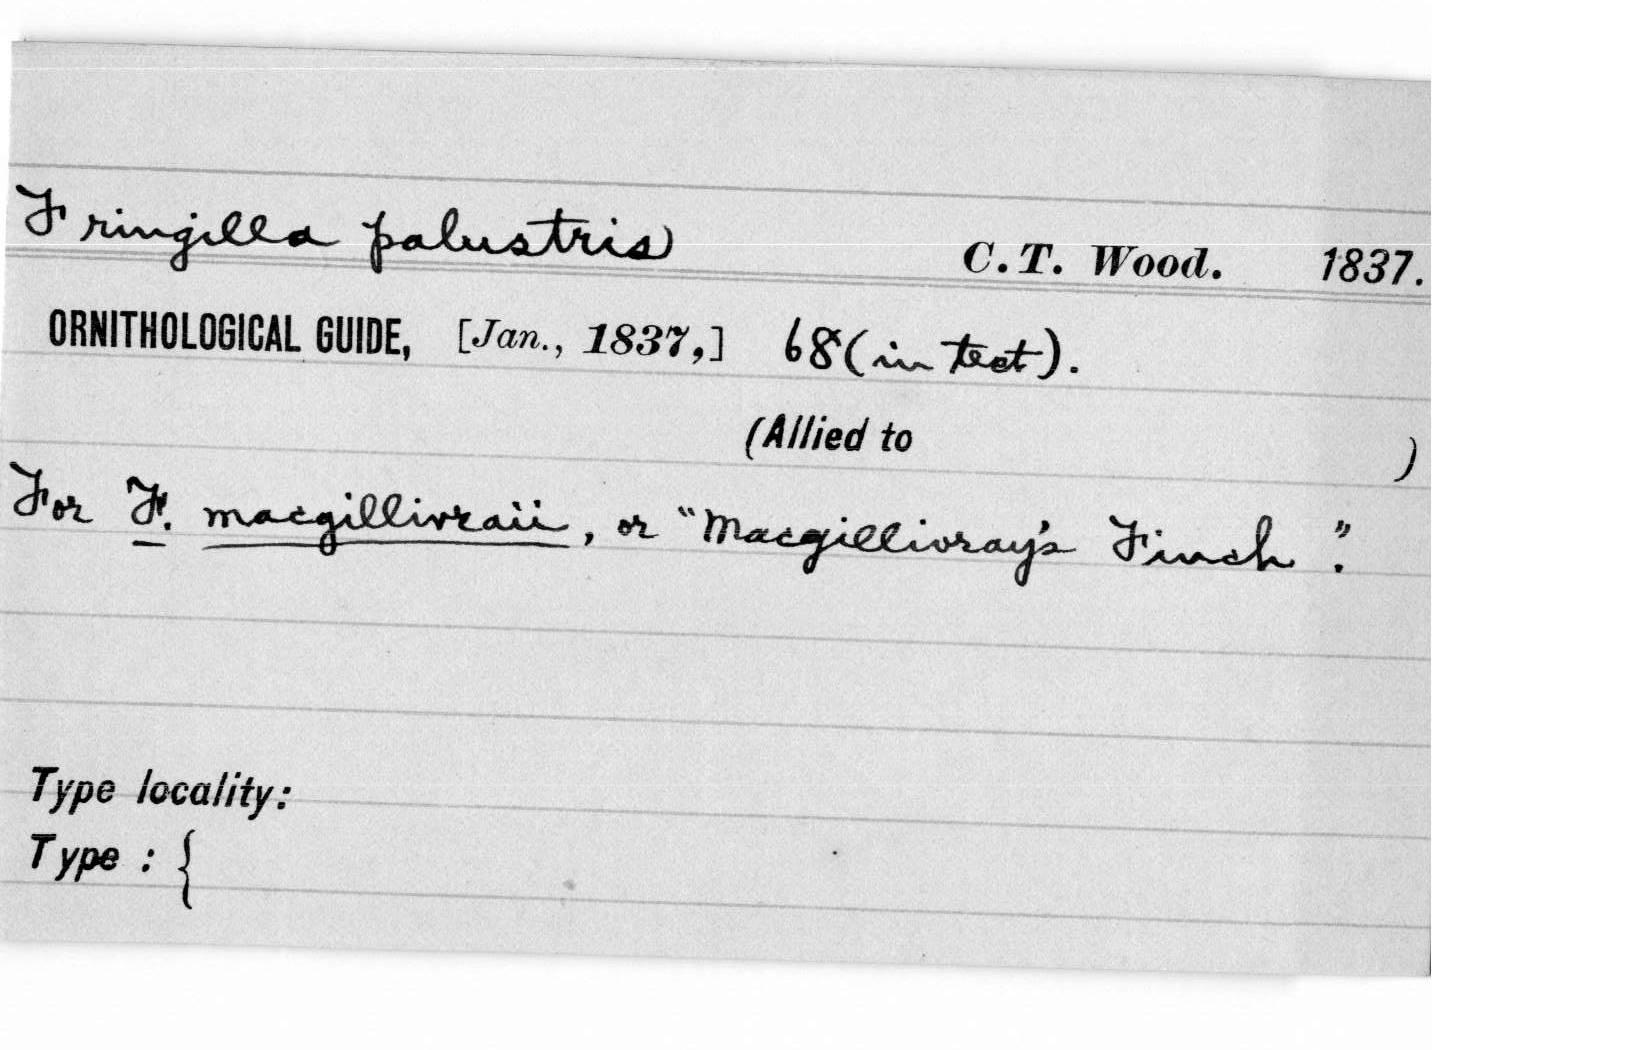 Fringilla palustris C. T. Wood. 1837.
ORNITHOLOGICAL GUIDE, [Jan., 1837,] 68 (in text).
(Allied to )
For F. macgillivraii, or "Macgillivray's Finch".
Type locality:
Type : {